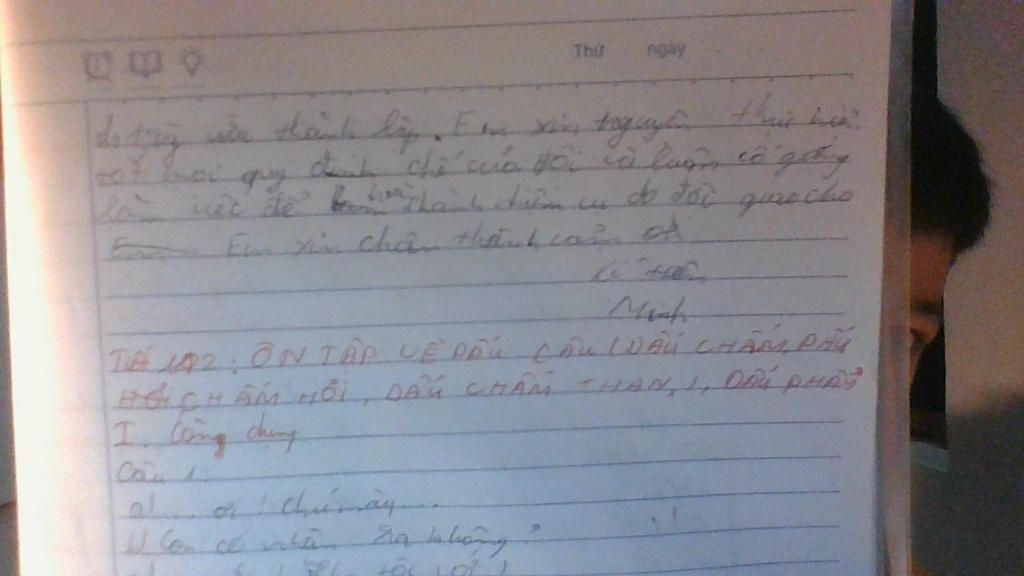 Thứ ngày
thành lập. Em xin nguyện thực hiện
tốt mọi quy định của đội và luôn cố gắng
làm việc để thành do đội giao cho
Em xin chân thành cảm ơn
Kí tên
Minh
Tiết 122: ÔN TẬP VỀ DẤU CÂU (DẤU CHẤM, DẤU
CHẤM HỎI, DẤU CHẤM THAN, DẤU PHẨY
I. Công dụng
Câu 1.
a) ... ơi! Chú mày...
b) Con có nhận ra không?